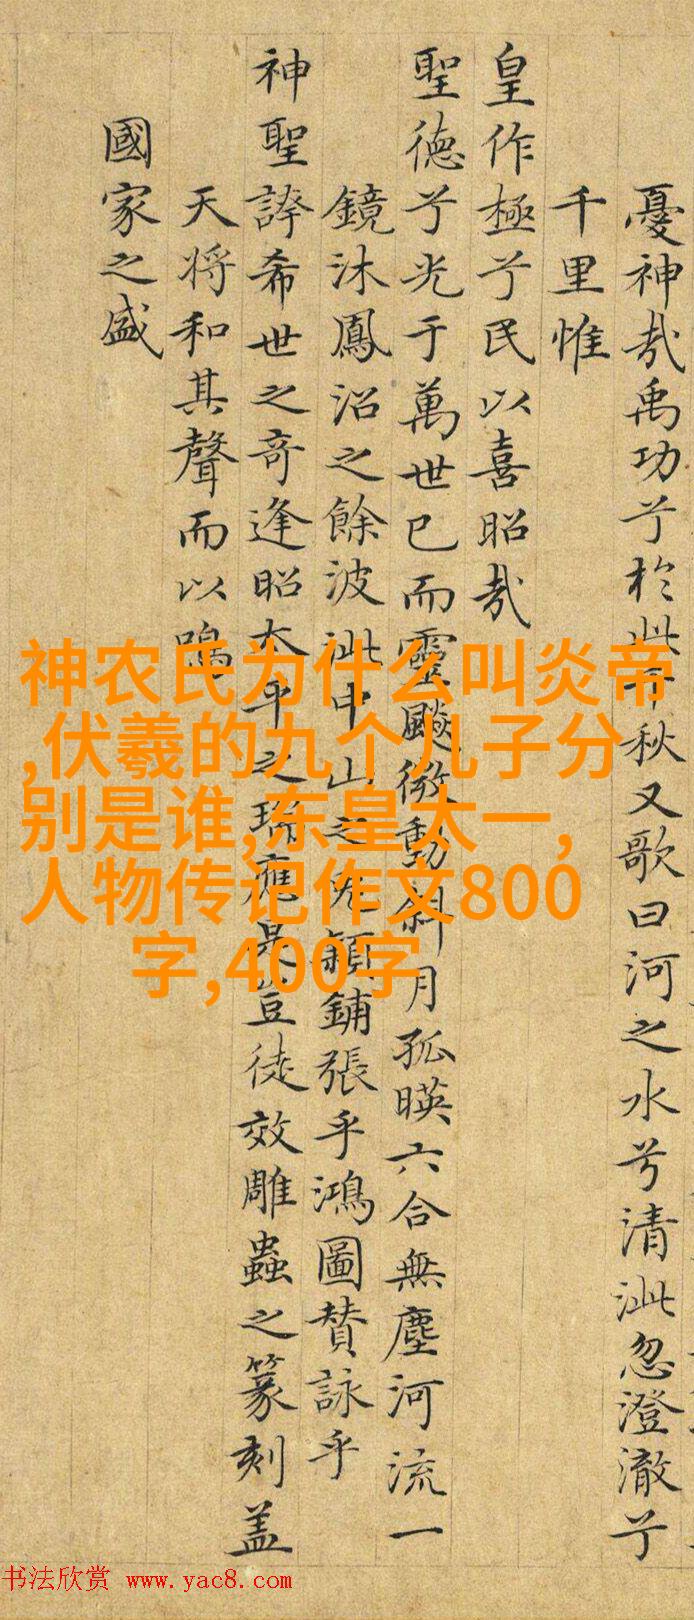 憂神哉禹功兮於此千秋又歌曰河之水兮清泚忽澄澈兮
千里惟
皇作極兮民以喜昭哉
聖德兮光于萬世已而靈飈微動斜月孤暎六合無塵河流一
鏡沐鳳沼之餘波泚中山之兔穎鋪張乎鴻圖賛詠乎
神聖誇希世之奇逢昭太平之瑞應是豈徒效雕蟲之篆刻盖
天将和其聲而以鳴
國家之盛
神农氏为什么叫炎帝
,伏羲的九个儿子分
别是谁,东皇太一,
人物传记作文800
字,400字
书法欣赏 www.yac8.com